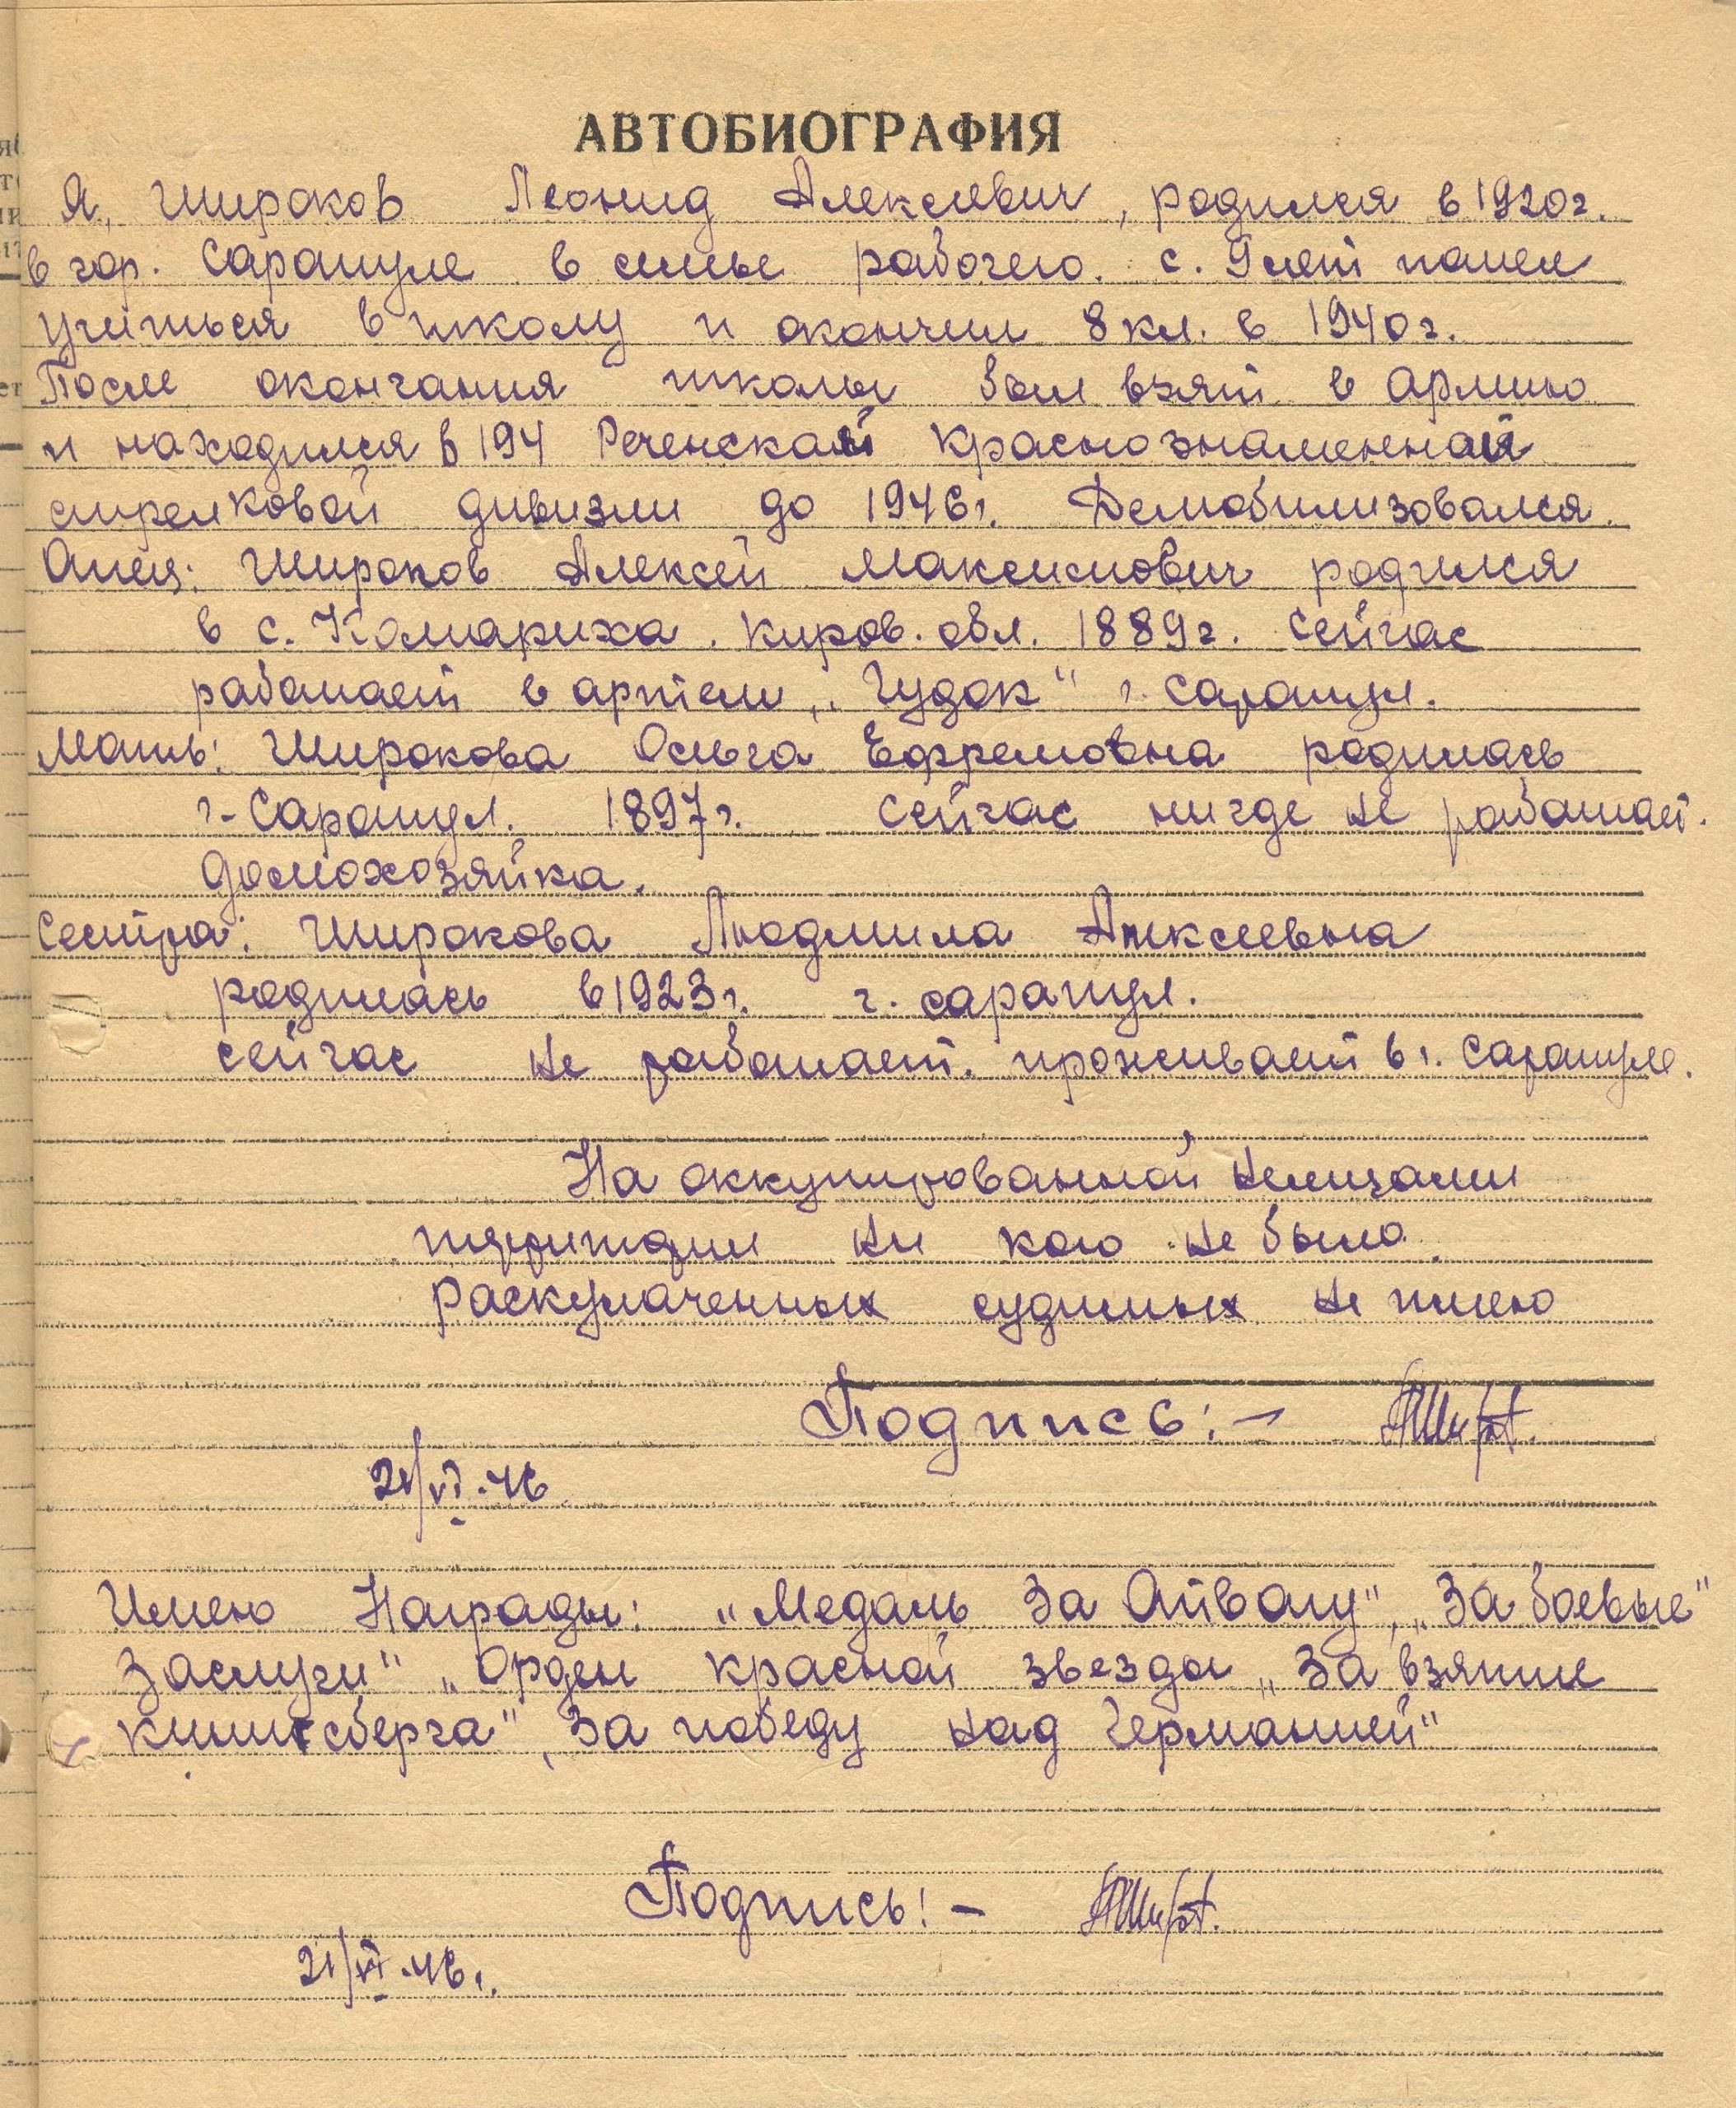 АВТОБИОГРАФИЯ
Я, Широков Леонид Алексеевич, родился в 1920г.
в гор. Сарапуле в семье рабочего. с. 9 лет пошел
учиться в школу и окончил 8 кл. в 1940г.
После окончания школы был взят в армию
и находился в 194 Реченской краснознаменной
стрелковой дивизии до 1946г. Демобилизовался.
Отец: Широков Алексей Максимович родился
в с. Комариха. Киров. обл. 1889г. сейчас
работает в артели „Гудок" г. Сарапул.
Мать: Широкова Ольга Ефремовна родилась
г. Сарапул. 1897г. сейчас нигде не работает.
домохозяйка.
Сестра: Широкова Людмила Алексеевна
родилась в 1923г. г. Сарапул.
сейчас не работает. проживает в г. Сарапуле.
На оккупированной немцами
территории ни кого не было.
раскулаченных судимых не имею
Подпись: –
21/VI.46
Имею Награды: „Медаль За Отвагу", „За боевые"
Заслуги" „Орден красной звезды „За взятие
Кинигсберга" „За победу над Германией"
Подпись! –
21/VI.46г.